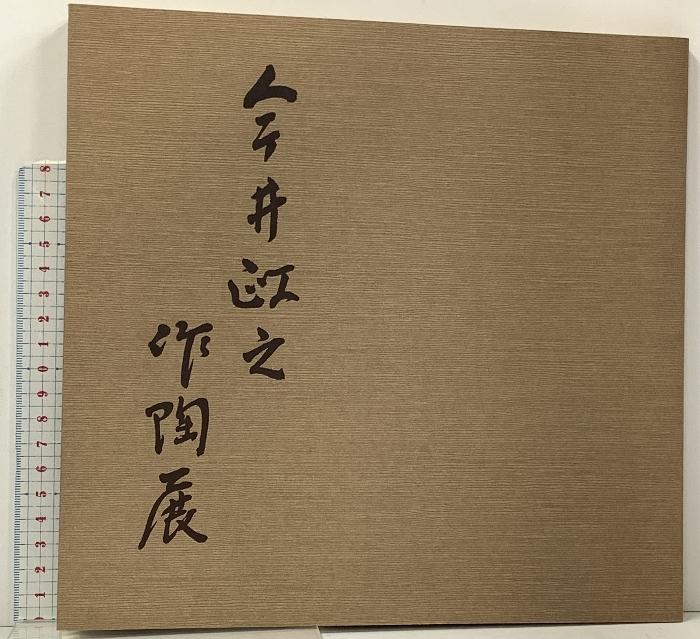 今井政之
作陶展
1 2 3 4 5 6 7 8 9 0 1 2 3 4 5 6 7 8